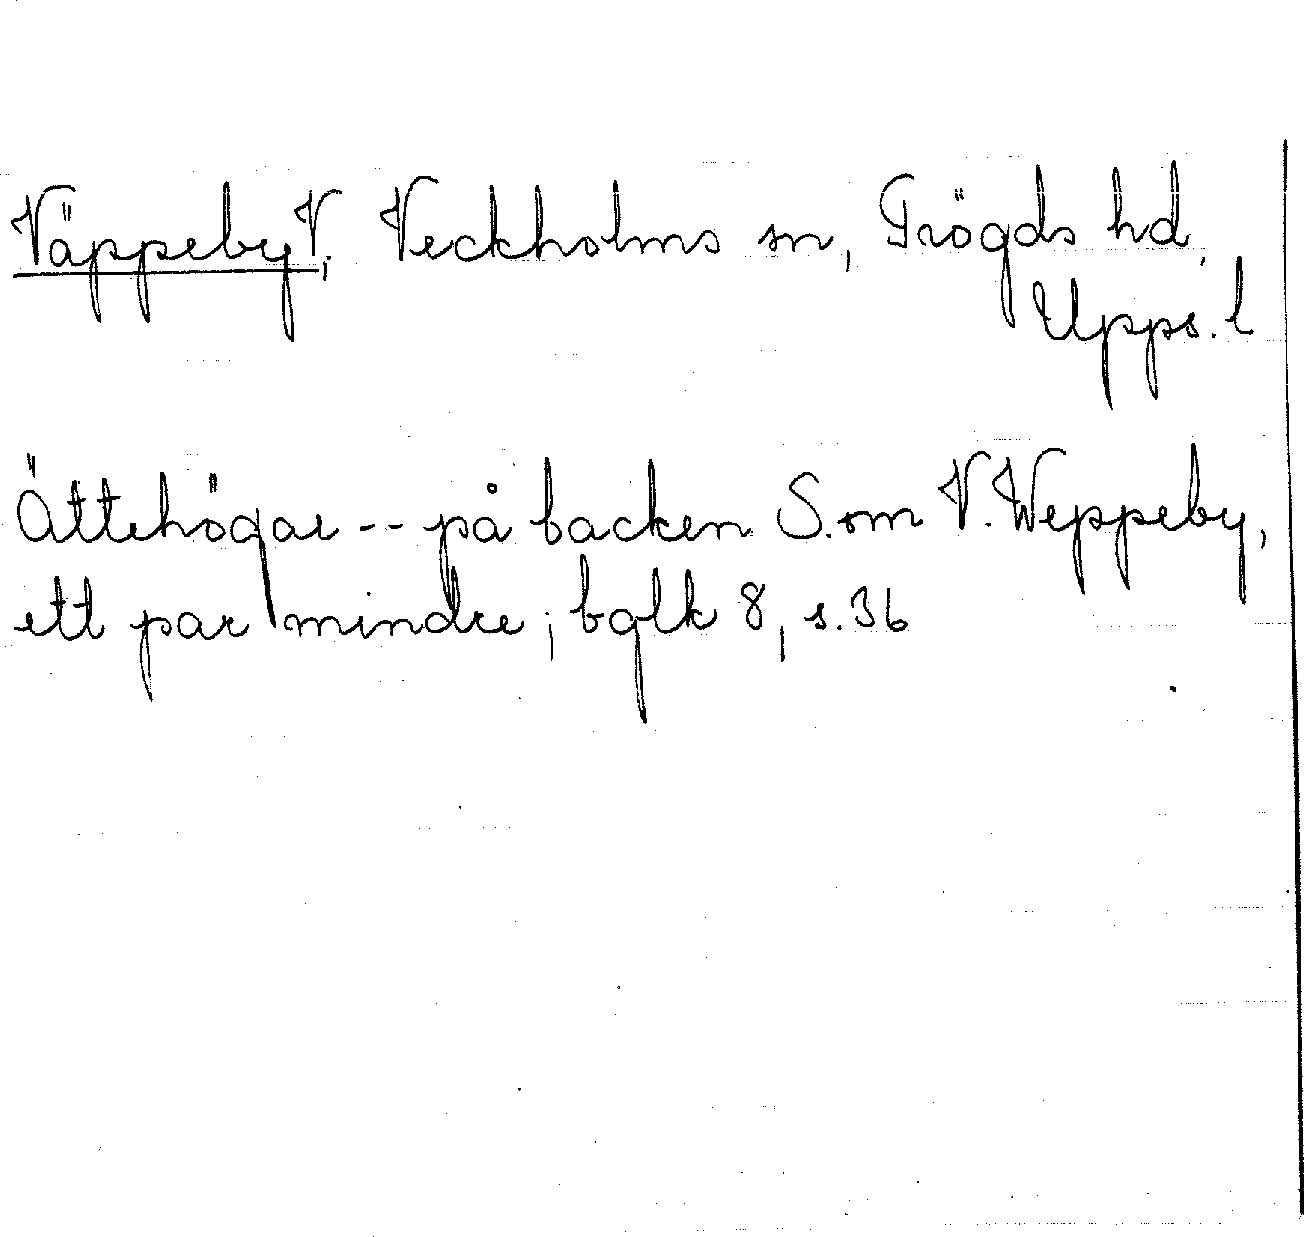 Väppeby V, Veckholms sn, Trögds hd,
Upps. l
Ättehögar -- på backen S. om V. Weppeby,
ett par mindre; bglk 8, s. 36